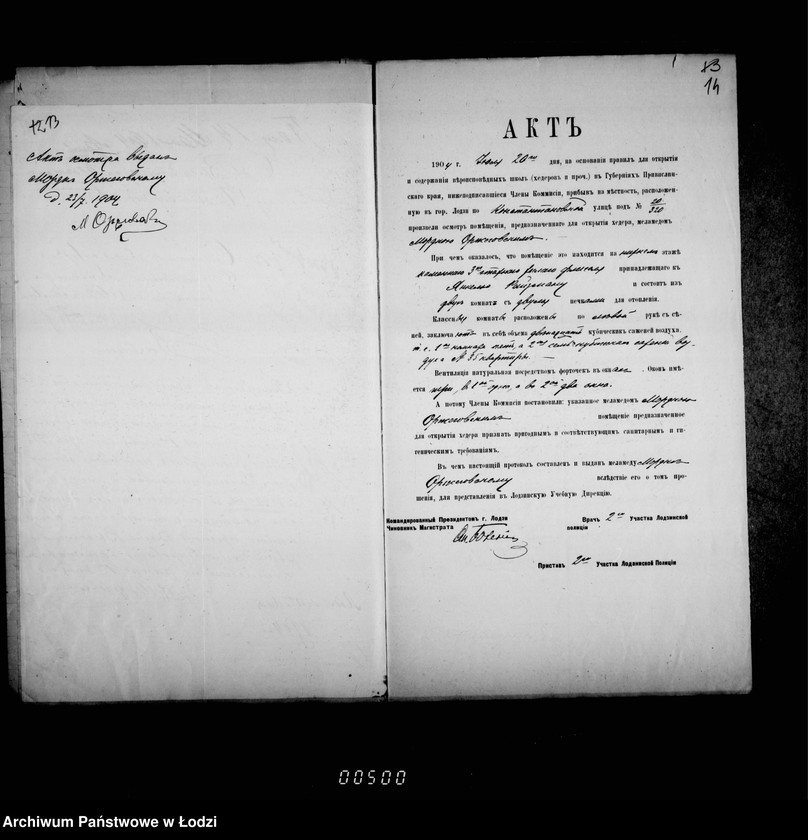 12 13
Актъ осмотра выданъ
Мордкѣ Оржеховскому
23/7 1904
13
14
АКТЪ
1904 г. Іюля 20 дня, на основаніи правилъ для открытія
и содержанія вѣроисповѣдныхъ школъ (хедеровъ и проч.) въ Губерніяхъ Привислин-
скаго края, нижеподписавшіеся Члены Комиссіи, прибывъ на мѣстность, расположен-
ную въ гор. Лодзи по Константиновской улицѣ подъ № 20/320
произвели осмотръ помѣщенія, предназначеннаго для открытія хедера, меламедомъ
Мордкою
При чемъ оказалось, что помѣщеніе это находится на этажѣ
каменнаго 3 принадлежащаго къ
и состоитъ изъ
двухъ комнатъ съ двумя печками для отопленія.
Классныя комнаты расположены по лѣвой рукѣ съ сѣ-
ней, заключаютъ въ себѣ объема двѣнадцать кубическихъ саженей воздуха,
т. е. 1ая комната пять, а 2ая семь
№ 35 квартиры.
Вентиляція натуральная посредствомъ форточекъ въ окнахъ. Оконъ имѣ-
ется три, въ 1ой одно, а во 2ой два окна.
А потому Члены Комиссіи постановили: указанное меламедомъ Мордкою
помѣщеніе предназначенное
для открытія хедера признать пригоднымъ и соотвѣтствующимъ санитарнымъ и ги-
гіеническимъ требованіямъ.
Въ чемъ настоящій протоколъ составленъ и выданъ меламеду Мордкѣ
вслѣдствіе его о томъ про-
шенія, для представленія въ Лодзинскую Учебную Дирекцію.
Командированный Президентомъ г. Лодзи
Чиновникъ Магистрата
Врачъ 2го Участка Лодзинской
полиціи
Приставъ 2го Участка Лодзинской Полиціи
00500
Archiwum Państwowe w Łodzi